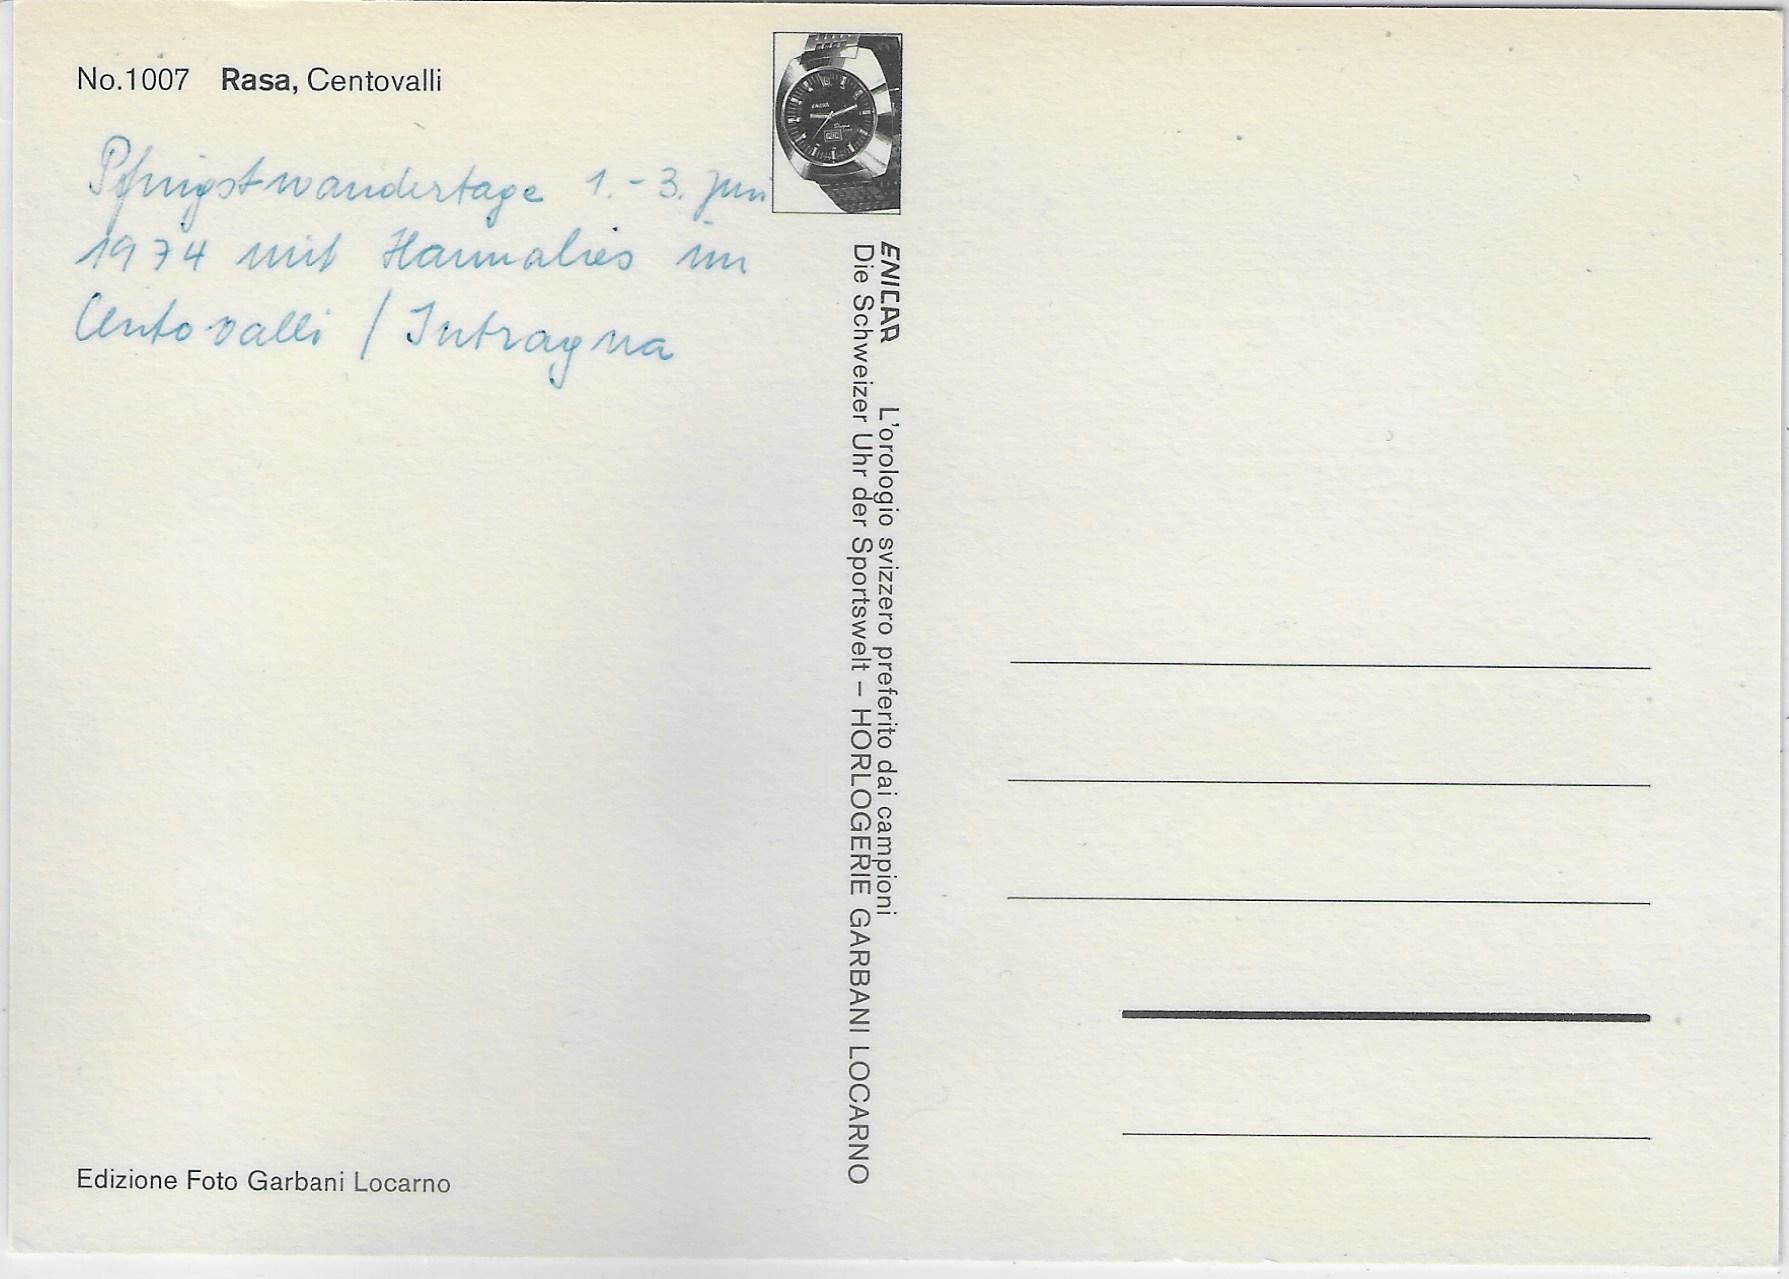 No.1007 Rasa, Centovalli
Pfingstwandertage 1.-3. Jun
1974 mit Hannalies im
Centovalli / Intragna
ENICAR L'orologio svizzero preferito dai campioni
Die Schweizer Uhr der Sportswelt – HORLOGERIE GARBANI LOCARNO
Edizione Foto Garbani Locarno